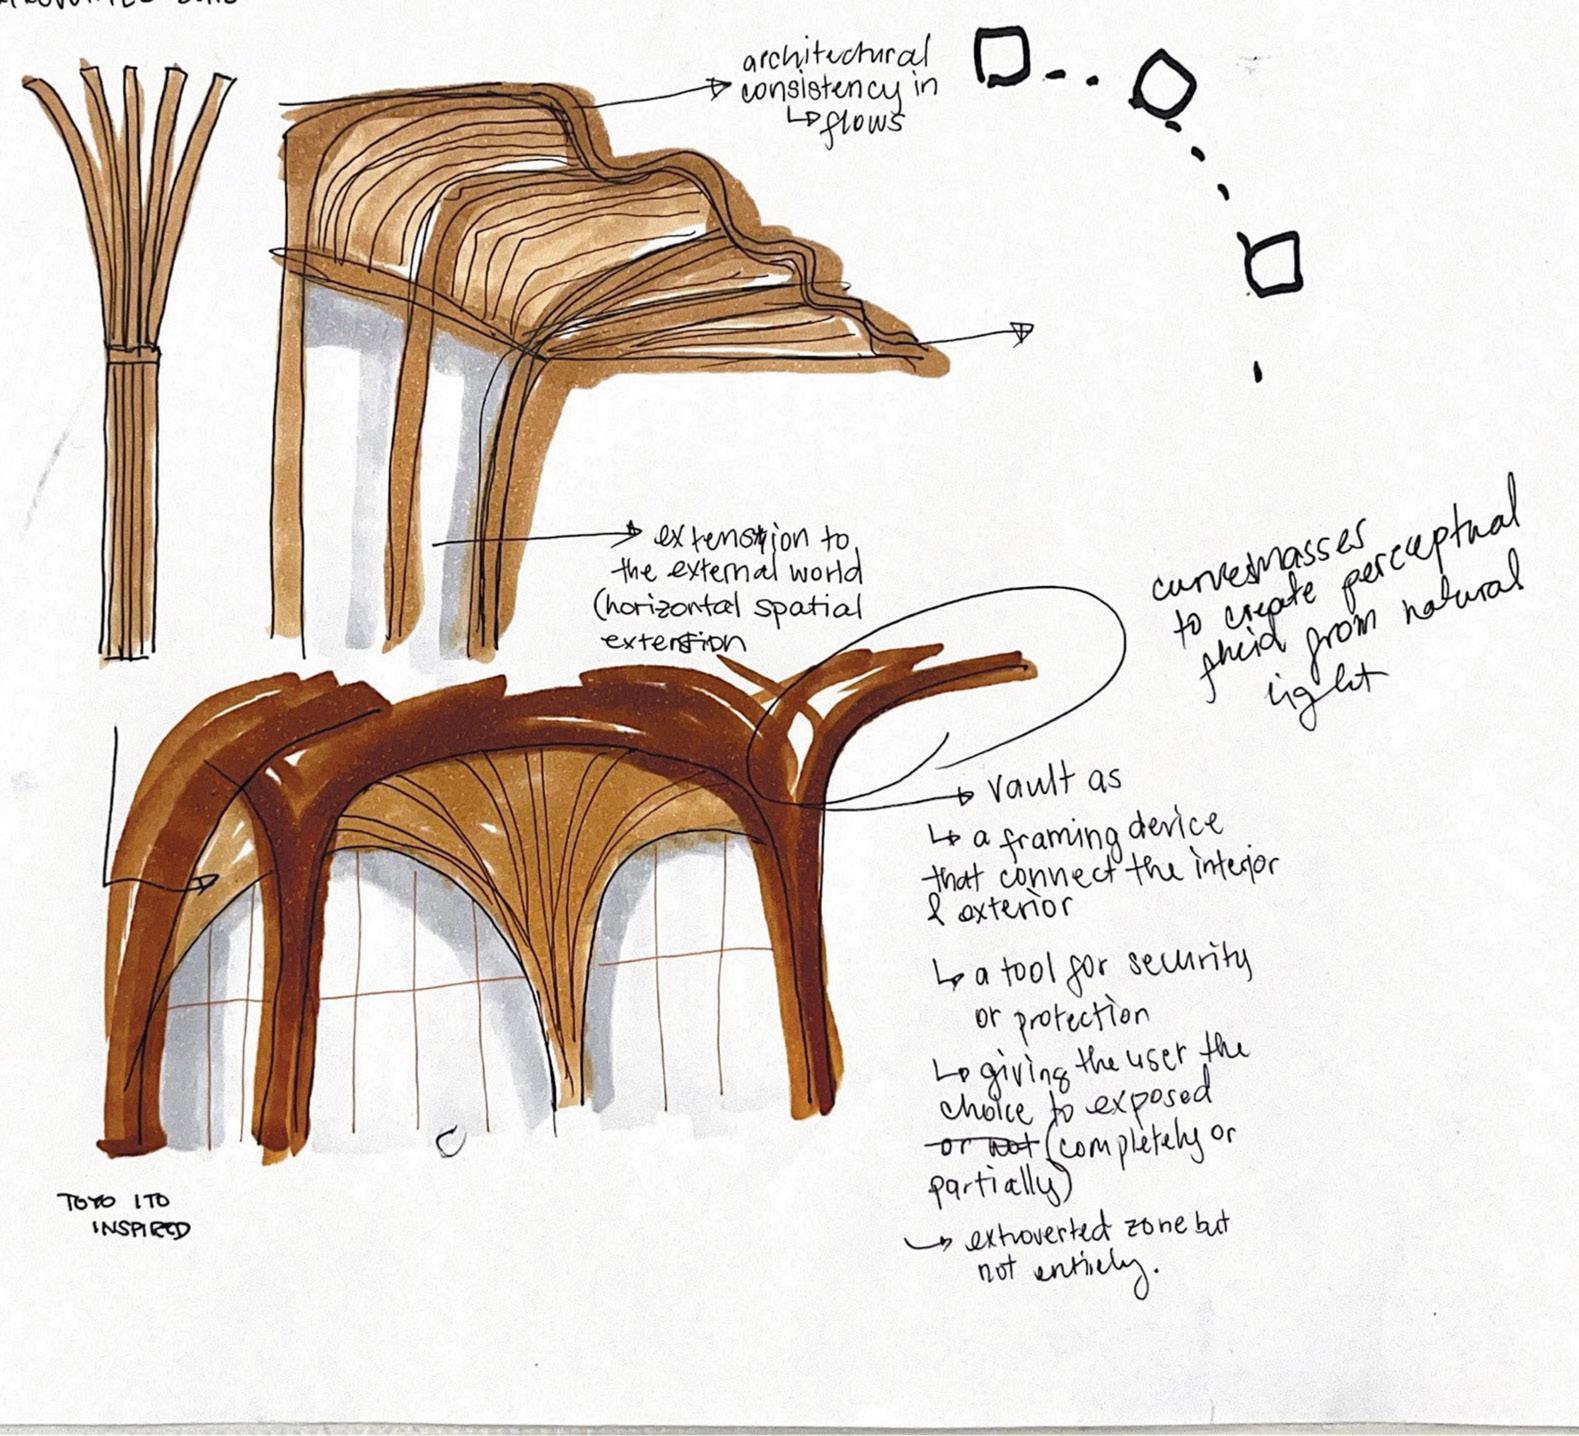 architectural
consistency in
↳ flows
extension to
the external world
(horizontal spatial
extension
curves masses
to create perceptual
fluid from natural
light
→ vault as
↳ a framing device
that connect the interior
& exterior
↳ a tool for security
or protection
↳ giving the user the
choice to exposed
or not (completely or
partially)
→ extroverted zone but
not entirely.
TOYO ITO
INSPIRED